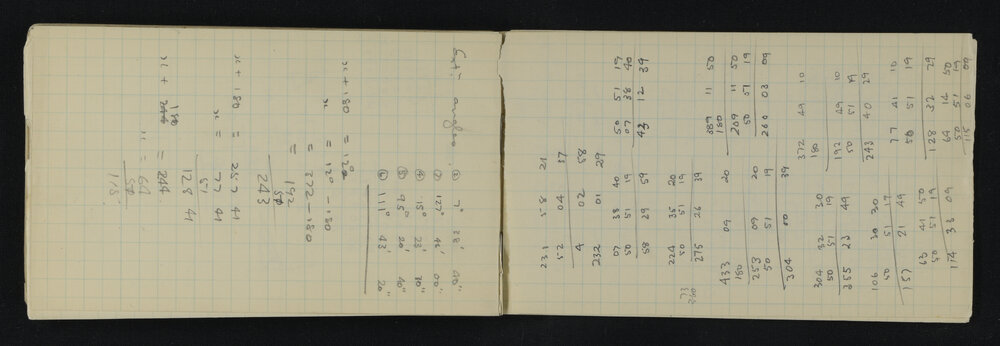 angles. ② 7° 28' 40"
③ 127° 46' 00"
④ 15° 23' 20"
⑤ 95° 20' 40"
⑥ 111° 43' 20"
x + 180 = 12°
x = 12° - 180
= 372 - 180
= 192
243
x + 180 = 257 41
x = 77 41
51
128 41
x + 180 = 244
x = 64
115
231 58 21
52 04 37
4 02 58
232 01 29
07 38 40
50 51 19
58 29 59
224 35 20
50 51 19
275 26 39
433 09 20
180
253 09 20
50 51 19
304 00 39
304 32 30
50 51 19
355 23 49
106 30 30
50 51 19
157 21 49
63 41 50
50 51 19
114 33 09
50 51 19
07 38 40
43 12 39
389 11 50
180
209 11 50
50 51 19
260 03 09
372 49 10
180
192 49 10
50 51 19
243 40 29
77 41 10
50 51 19
128 32 29
64 14 50
50 51 19
115 06 09